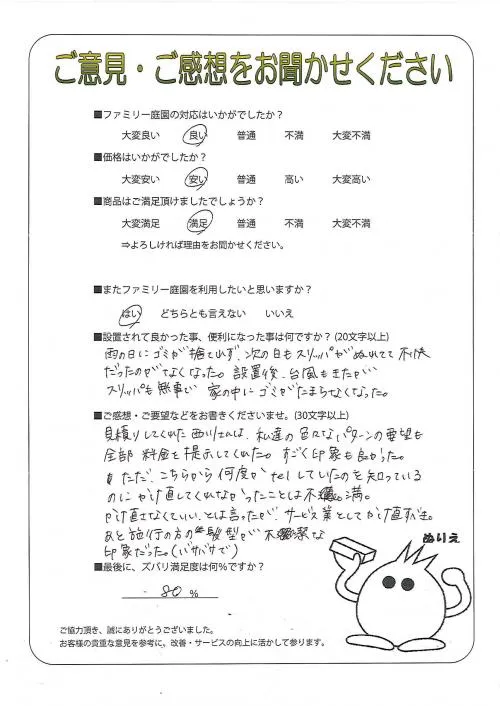 ご意見・ご感想をお聞かせください
■ファミリー庭園の対応はいかがでしたか?
大変良い 良い 普通 不満 大変不満
■価格はいかがでしたか?
大変安い 安い 普通 高い 大変高い
■商品はご満足頂けましたでしょうか?
大変満足 満足 普通 不満 大変不満
⇒よろしければ理由をお聞かせください。
■またファミリー庭園を利用したいと思いますか?
はい どちらとも言えない いいえ
■設置されて良かった事、便利になった事は何ですか? (20文字以上)
雨の日にゴミが捨てれず、次の日もスリッパがぬれてて不快
だったのがなくなった。設置後、台風もきたが
スリッパも無事で 家の中にゴミがたまらなくなった。
■ご感想・ご要望などをお書きくださいませ。(30文字以上)
見積りしてくれた西川さんは、私達の色々なパターンの要望も
全部 料金を提示してくれた。すごく印象も良かった。
ただ、こちらから何度かtelしていたのを知っている
のにかけ直してくれなかったことは不満。
かけ直さなくていい、とは言ったが、サービス業としてかけ直すべき。
あと施行の方の髪型が不潔な
印象だった。(バサバサで)
ぬりえ
■最後に、ズバリ満足度は何%ですか?
80 %
ご協力頂き、誠にありがとうございました。
お客様の貴重な意見を参考に、改善・サービスの向上に活かして参ります。